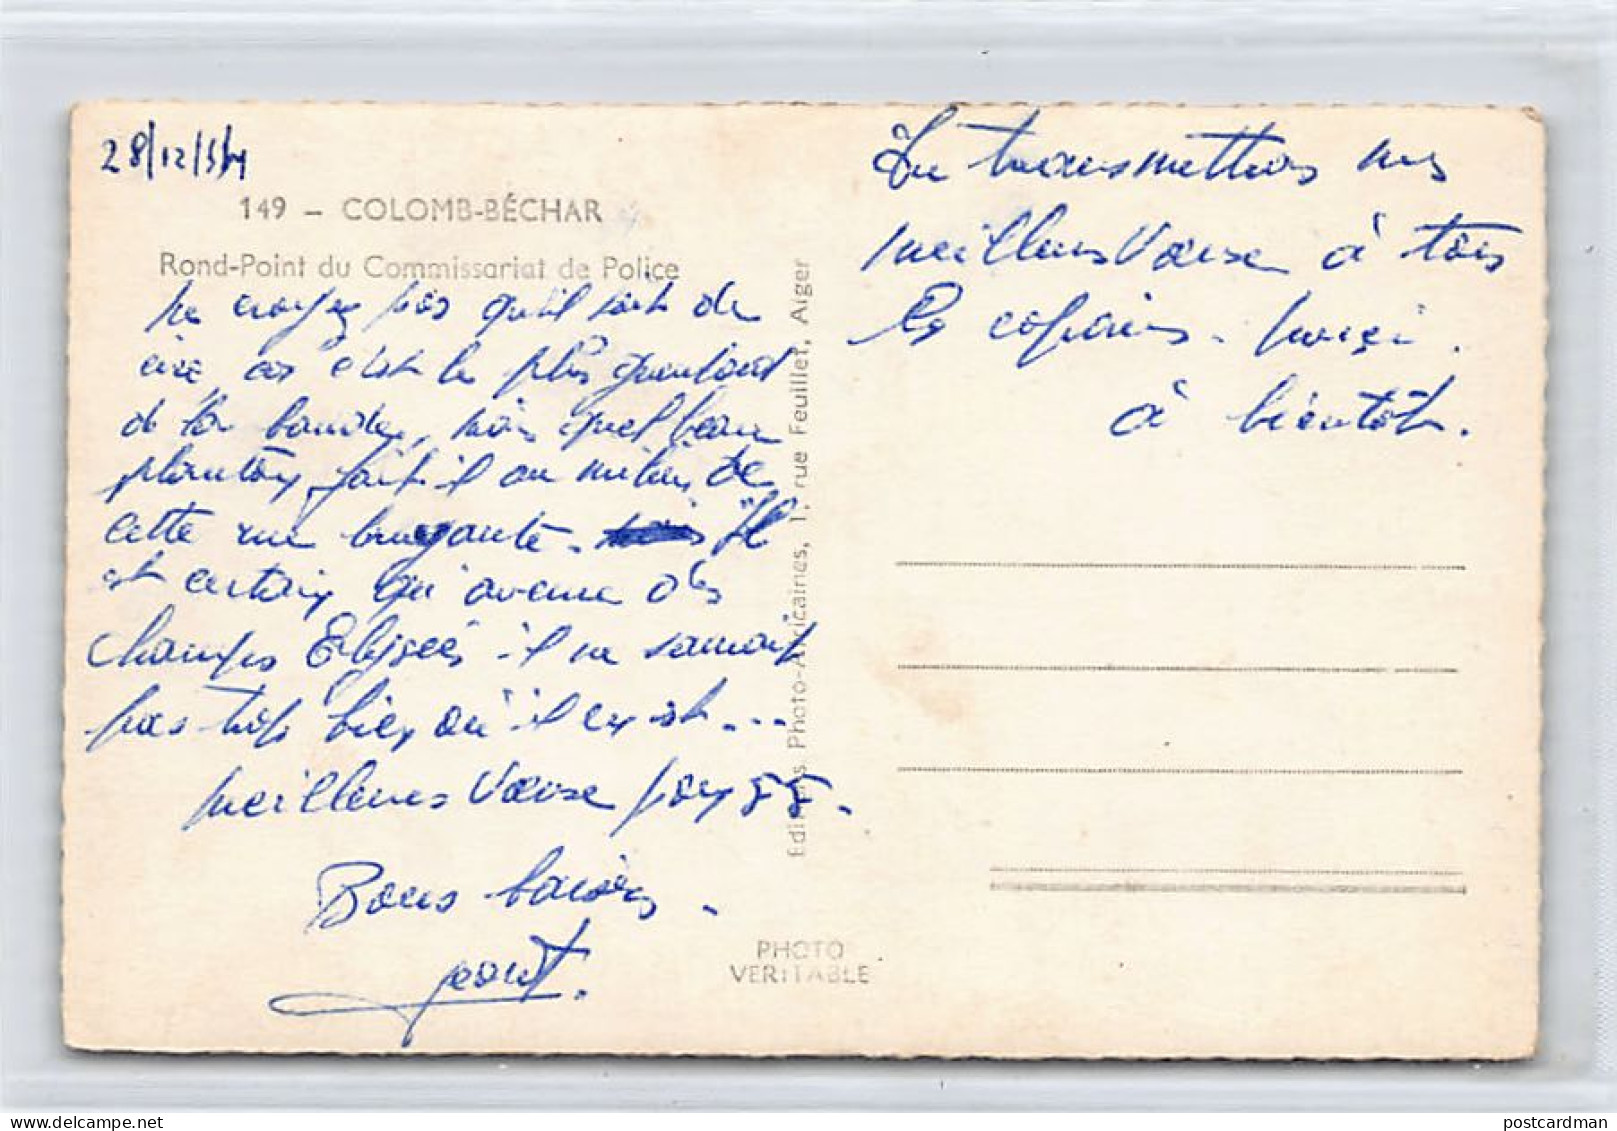 28/12/54
149 – COLOMB-BÉCHAR
Rond-Point du Commissariat de Police
ne croyez pas qu'il soit de
cire, car c'est le plus gueulard
de la bande, mais quel beau
planton fait il au milieu de
cette rue bruyante. Il
est certain qu'avenue des
Champs Elysées il ne saurait
pas trop bien où il en est...
meilleurs Vœux pour 55.
Bons baisers.
Tu transmettras mes
meilleurs Vœux à tous
les copains. merci.
à bientôt.
Editions Photo-Africaines, 1, rue Feuillet, Alger
PHOTO
VERITABLE
postcardman